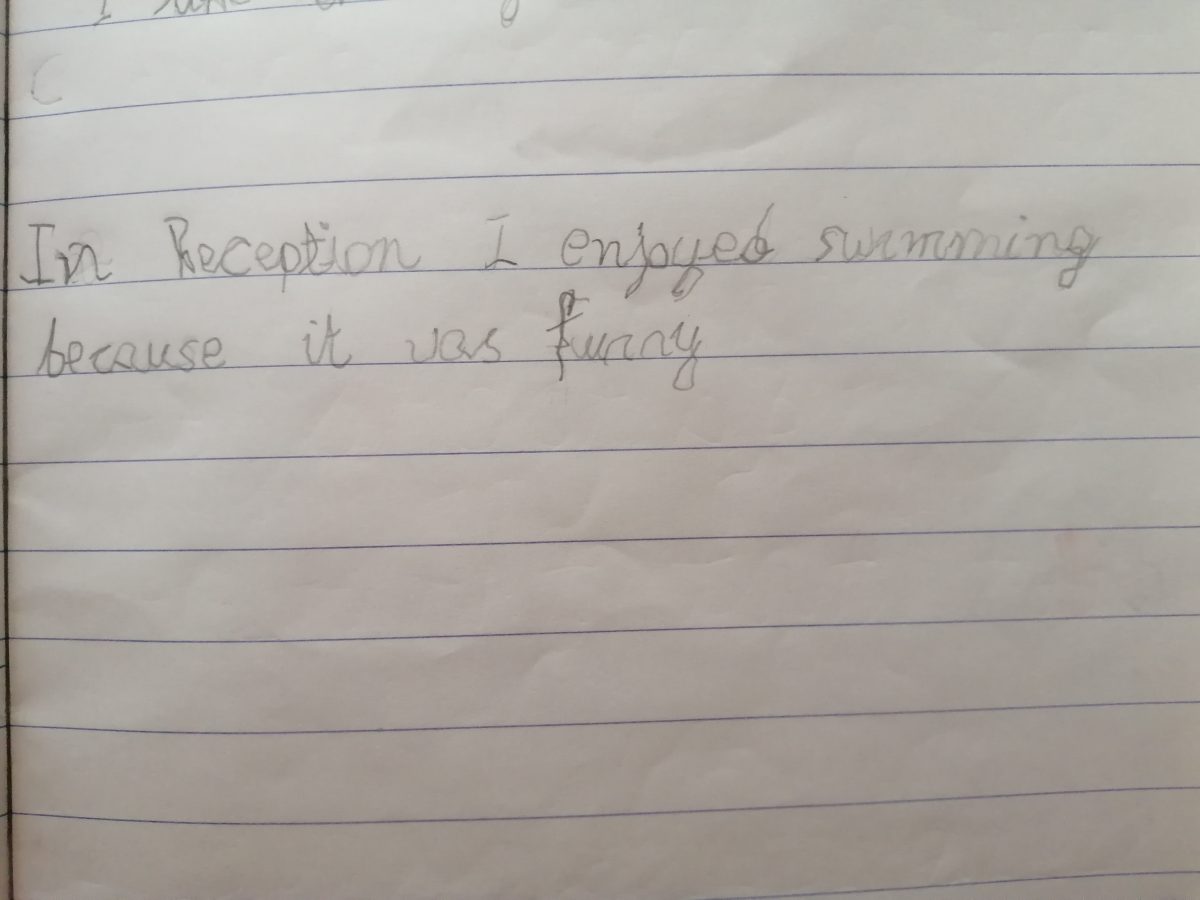 In Reception I enjoyed swimming
because it was funny